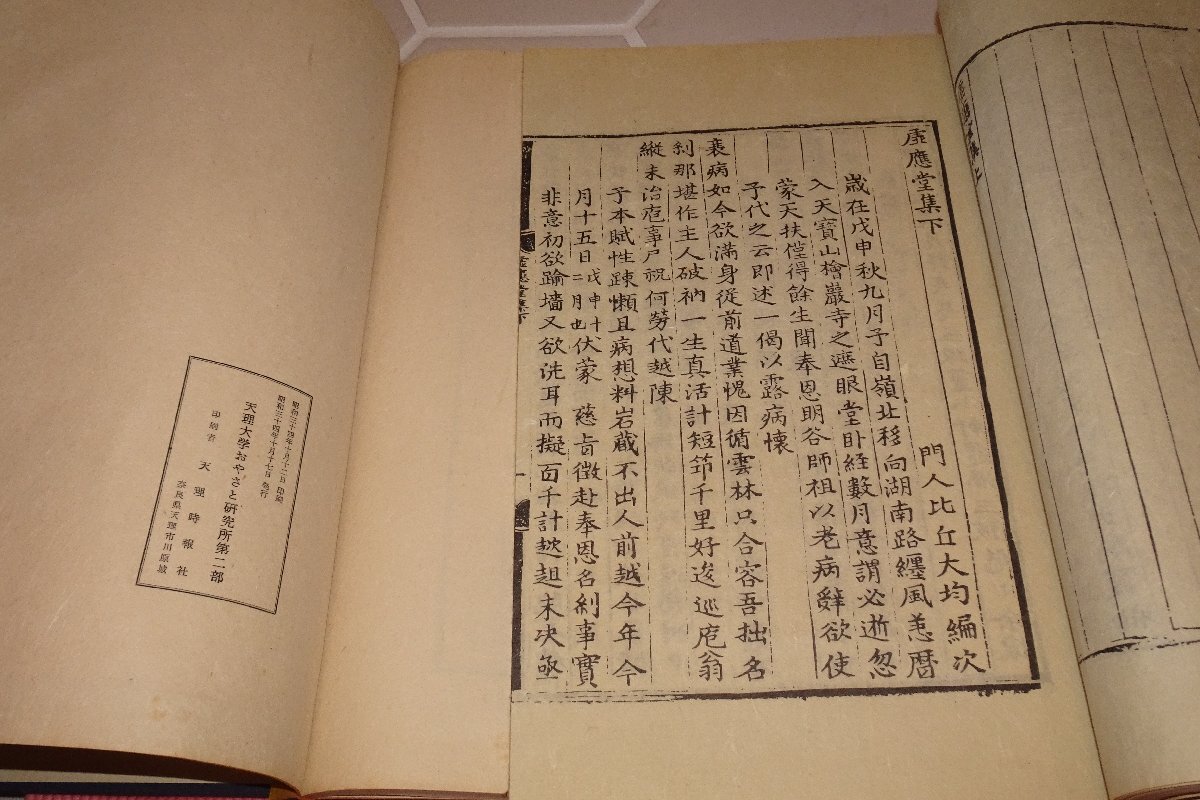 虚應堂集下
門人比丘大均編次
歲在戊申秋九月子自嶺北移向湖南路纏風恙曆
入天寶山檜巖寺之遮眼堂卧経數月意謂必逝忽
蒙天扶僅得餘生聞奉恩明谷師祖以老病辝欲使
子代之云即述一偈以露病懷
衰病如今欲滿身從前道業愧因循雲林只合容吾拙名
刹那堪作主人破衲一生真活計短笻千里好逡巡庖翁
縱未治庖事尸祝何勞代越陳
予本賦性踈懶且病想料岩藏不出人前越今年今
月十五日戊申十二月也伏蒙 慈旨徴赴奉恩名刹事實
非意初欲踰墻又欲洗耳而擬百千計趑趄未决亟
虚應堂集下
一
昭和三十四年十月十二日 印刷
昭和三十四年十月十七日 発行
天理大学おやさと研究所第二部
印刷者 天理時報社
奈良県天理市川原城